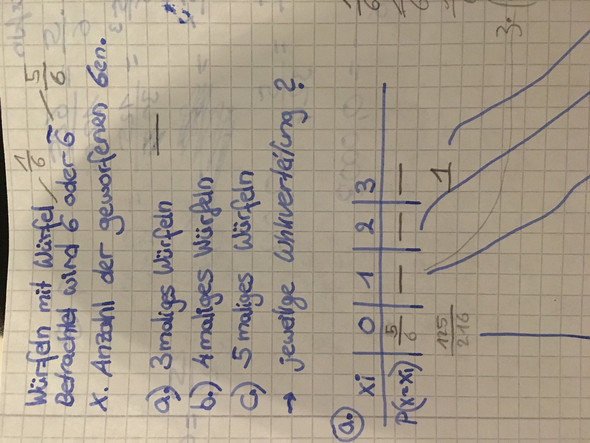 Würfeln mit Würfel 1/6
Betrachtet wird 6 oder 6̅ 5/6
X. Anzahl der geworfenen 6en.
a.) 3 maliges Würfeln —
b.) 4 maliges Würfeln
c.) 5 maliges Würfeln
→ jeweilige Whkverteilung?
a. xi | 0 | 1 | 2 | 3
P(X=xi) | 5/6 | — | — | —
125/216 1
3.